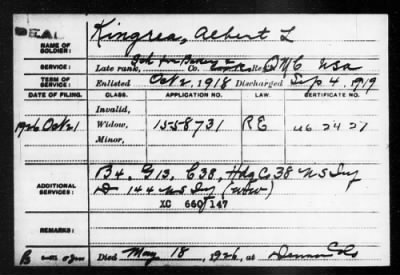 DEAL
Kingrea, Albert L
NAME OF SOLDIER:
SERVICE: Late rank, Co. Re Q M C USA
TERM OF SERVICE: Enlisted Oct 2, 1918 Discharged Sep 4, 1919
DATE OF FILING. CLASS. APPLICATION NO. LAW. CERTIFICATE NO.
Invalid,
1926 Oct 21 Widow, 1558731 RE
Minor,
ADDITIONAL SERVICES: B4, G13, C38, Hdq Co, 38 US Inf
D 144 US Inf (WW)
XC 660 147
REMARKS:
Died May 18, 1926, at